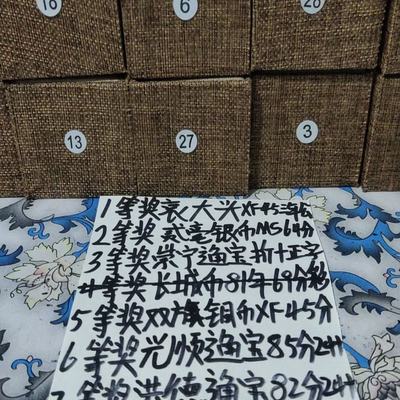 18
6
28
13
27
3
1等奖袁大头XF45
2等奖贰毫银币MS64分
3等奖崇宁通宝折十正字
4等奖长城币81年69分
5等奖双旗铜币XF45分
6等奖光顺通宝85分
7等奖洪德通宝82分